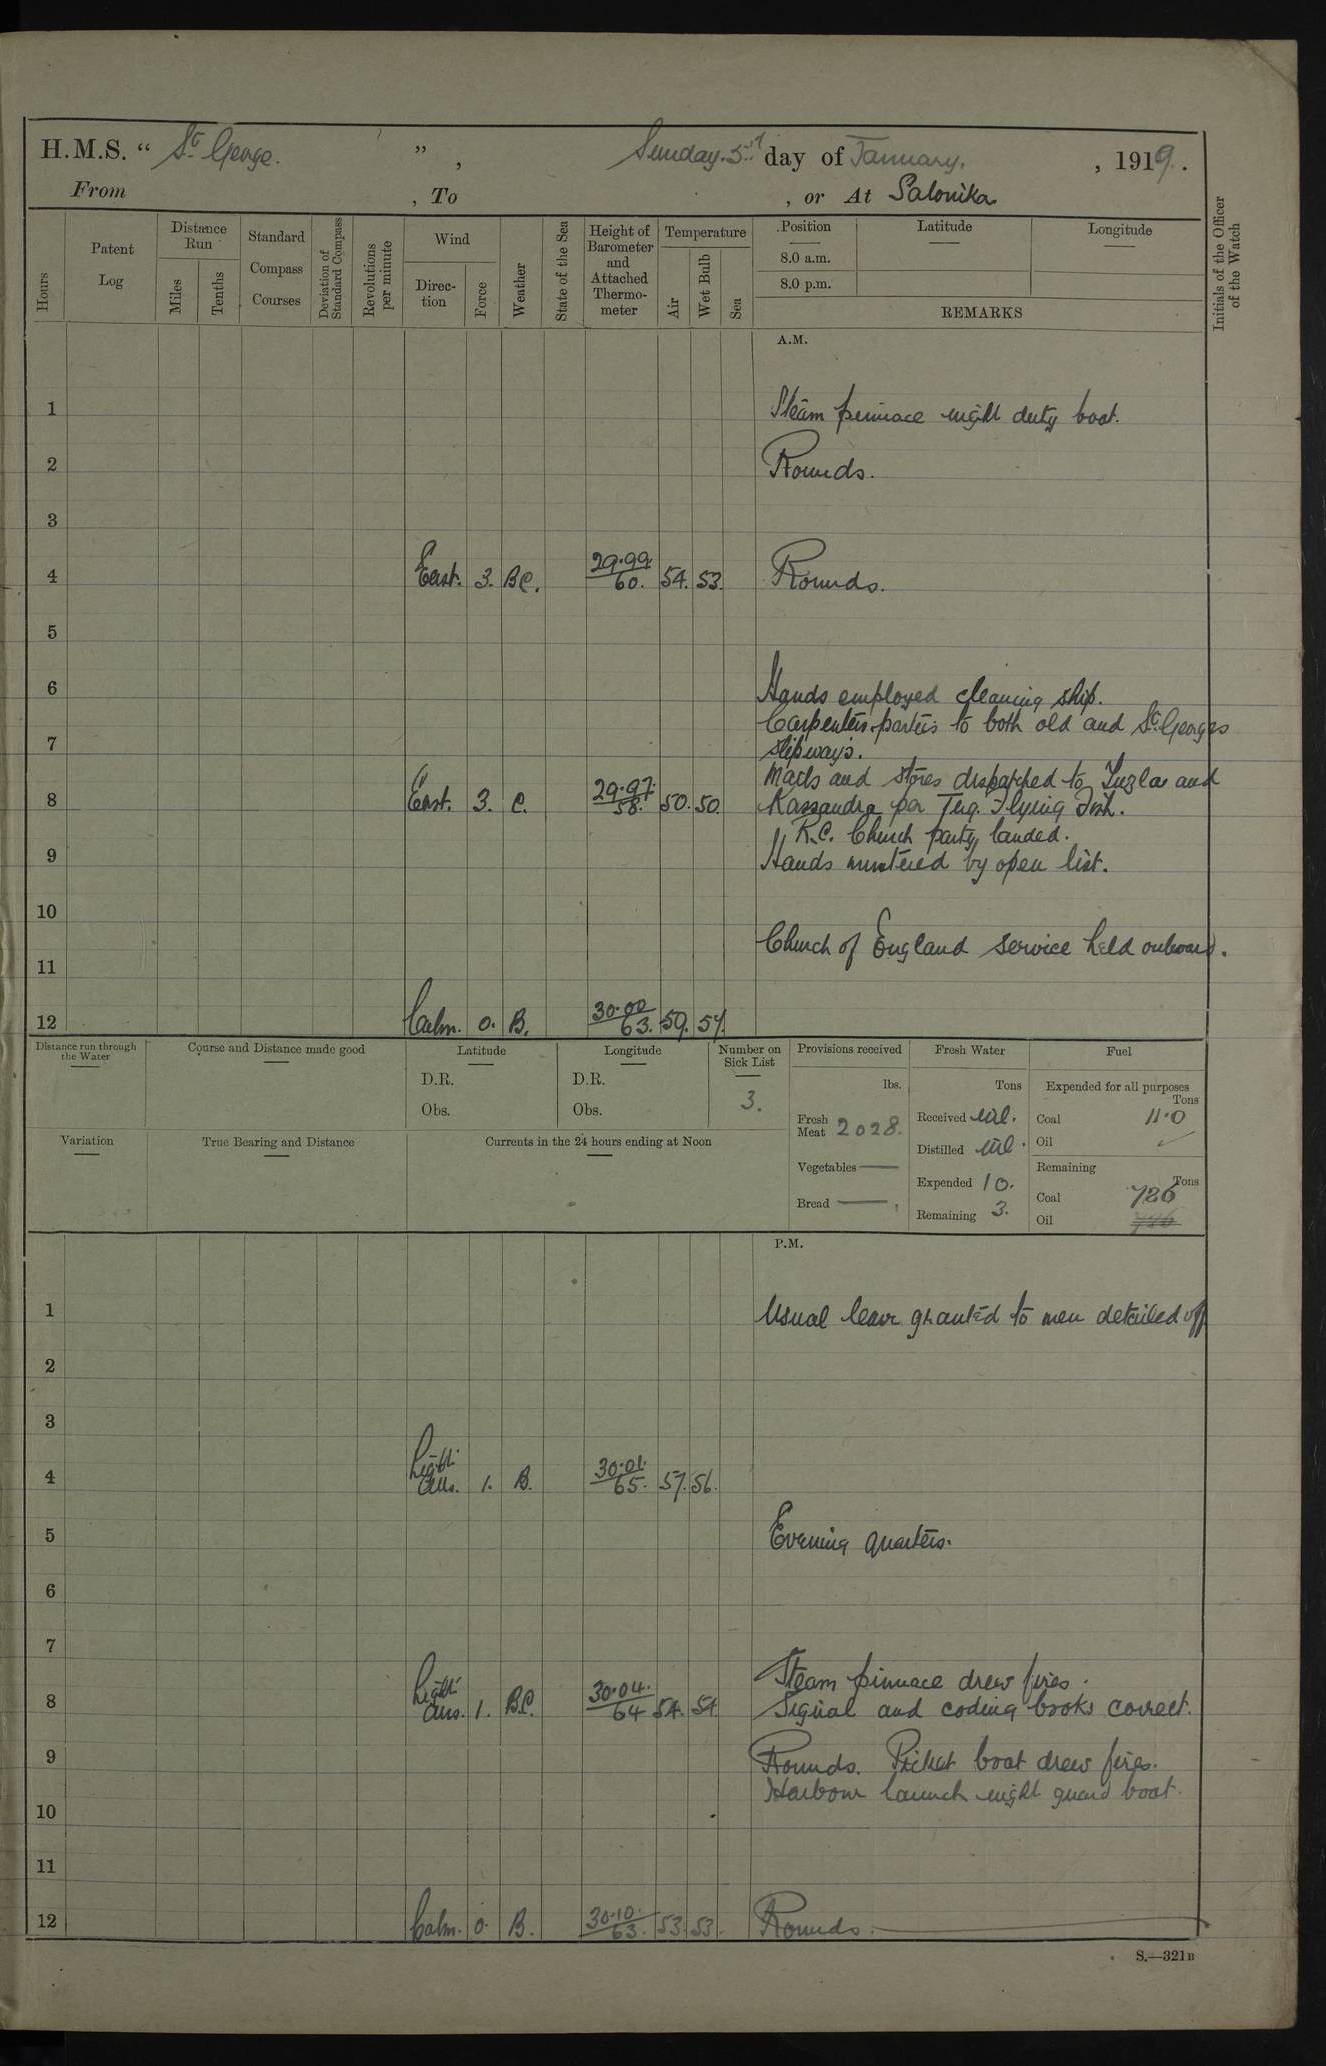 H.M.S. " St George. " , Sunday. 5th day of January. , 1919.
From , To , or At Salonika
Hours
Patent Log
Distance Run
Miles
Tenths
Standard Compass Courses
Deviation of Standard Compass
Revolutions per minute
Wind
Direction
Force
Weather
State of the Sea
Height of Barometer and Attached Thermometer
Temperature
Air
Wet Bulb
Sea
Position
8.0 a.m.
8.0 p.m.
Latitude
Longitude
REMARKS
Initials of the Officer of the Watch
A.M.
1 Steam pinnace night duty boat.
2 Rounds.
3
4 East. 3. BC. 29.99. 60. 54. 53. Rounds.
5
6 Hands employed cleaning ship.
Carpenters parties to both old and St Georges
7 slipways.
Mails and stores dispatched to Tuzla and
8 East. 3. C. 29.97. 58. 50. 50. Kassandra per Tug. Flying Fish.
R.C. Church party landed.
9 Hands mustered by open list.
10
Church of England service held onboard.
11
12 Calm. 0. B. 30.00 63. 59. 57.
Distance run through the Water
Course and Distance made good
Latitude
D.R.
Obs.
Longitude
D.R.
Obs.
Number on Sick List
3.
Variation
True Bearing and Distance
Currents in the 24 hours ending at Noon
Provisions received
lbs.
Fresh Meat 2028.
Vegetables —
Bread —
Fresh Water
Tons
Received nil.
Distilled nil.
Expended 10.
Remaining 3.
Fuel
Expended for all purposes
Tons
Coal 11.0
Oil
Remaining
Tons
Coal 786
Oil
P.M.
1 Usual leave granted to men detailed off
2
3
4 Light airs. 1. B. 30.01. 65. 57. 56.
5 Evening quarters.
6
7
Steam pinnace drew fires.
8 Light airs. 1. BC. 30.04. 64 54. 54. Signal and coding books correct.
9 Rounds. Picket boat drew fires.
Harbour launch night guard boat.
10
11
12 Calm. 0. B. 30.10. 63. 53. 53. Rounds.
S.—321B